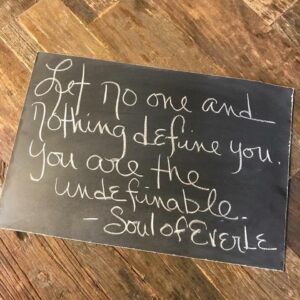 Let no one and
nothing define you.
You are the
undefinable.
- Soul of EverLe